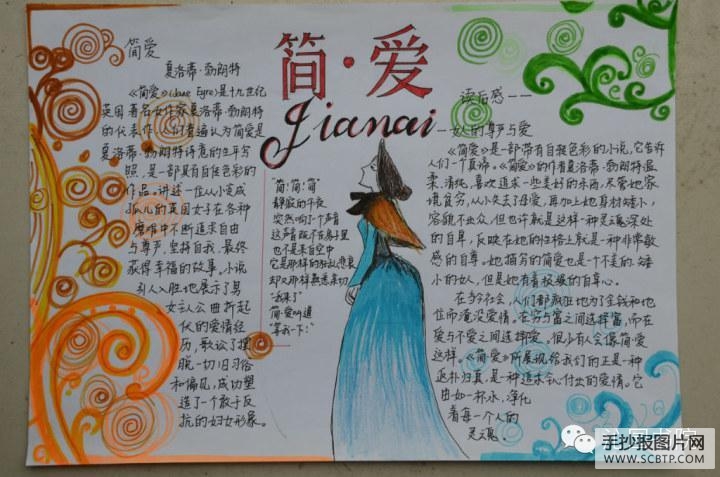 简·爱
Jianai
简爱
夏洛蒂·勃朗特
《简爱》(Jane Eyre)是十九世纪
英国著名女作家夏洛蒂·勃朗特
的代表作,人们普遍认为简爱是
夏洛蒂·勃朗特诗意的生平写
照,是一部具有自传色彩的
作品。讲述一位从小变成
孤儿的英国女子在各种
磨难中不断追求自由
与尊严,坚持自我,最终
获得幸福的故事。小说
引人入胜地展示了男
女主人公曲折起
伏的爱情经
历,歌讼了摆
脱一切旧习俗
和偏见,成功塑
造了一个敢于反
抗的妇女形象。
"简!简!简"
静寂的午夜
突然响了个声音
这声音既不在房子里
也不是来自空中
它是那样的狂放悲哀
却又那样熟悉亲切
"我来了"
简·爱叫道
"等我一下!"
读后感——
—女人的尊严与爱
《简爱》是一部带有自我色彩的小说,它告诉
人们一个真谛。《简爱》的作者夏洛蒂·勃朗特温
柔,清纯,喜欢追求一些美好的东西,尽管她家
境贫穷,从小失去母爱,再加上她身材矮小,
容貌不出众,但也许就是这样一种灵魂深处
的自卑,反映在她的性格上就是一种非常敏
感的自尊。她描写的简爱也是一个不美的,矮
小的女人,但是她有着极强的自尊心。
在当今社会,人们都疯狂地为了金钱和地
位而淹没爱情。在穷与富之间选择富,而在
爱与不爱之间选择不爱。很少有人会像简·爱
这样。《简爱》所展现给我们的正是一种
返朴归真,是一种追求
付出的爱情。它
由如一杯水,净化
着每一个人的
灵魂
手抄报图片网
WWW.SCBTP.COM